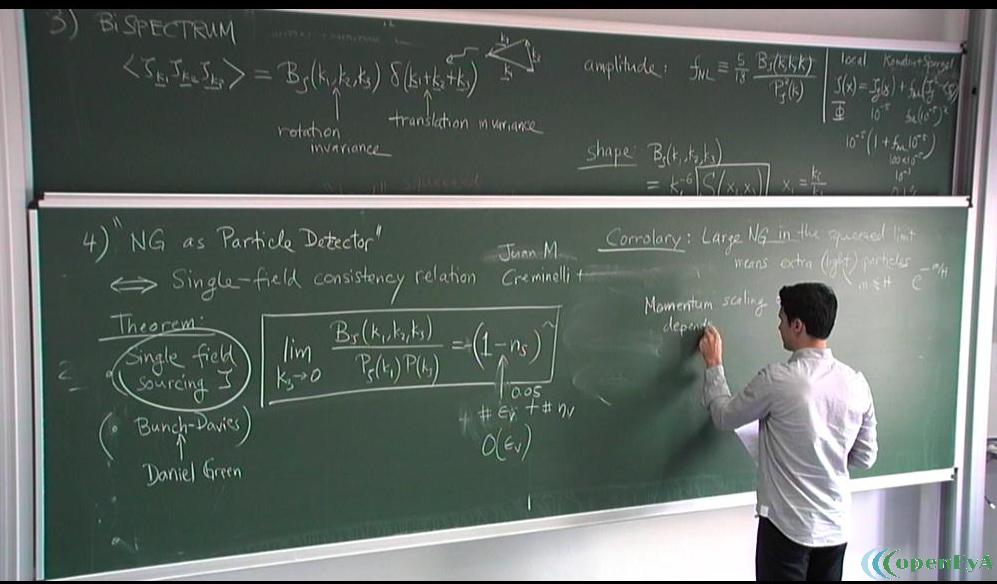 3) BiSPECTRUM
<ζk1 ζk2 ζk3> = Bζ(k1,k2,k3) δ(k1+k2+k3)
rotation invariance
translation invariance
amplitude: fNL ≡ 5/18 Bζ(k,k,k)/Pζ²(k)
shape: Bζ(k1,k2,k3)
local
10^-5 (1 + fNL 10^-5)
4) "NG as Particle Detector"
⟺ Single-field consistency relation
Juan M
Creminelli +
Theorem:
• Single field
sourcing ζ
(• Bunch-Davies)
↑
Daniel Green
lim k3→0 Bζ(k1,k2,k3)/Pζ(k1)P(k3) = (1-ns)
0.05
# εv + # ηv
O(εv)
Corrolary: Large NG in the squeezed limit
means extra (light) particles
Momentum scaling
depends
openEyA